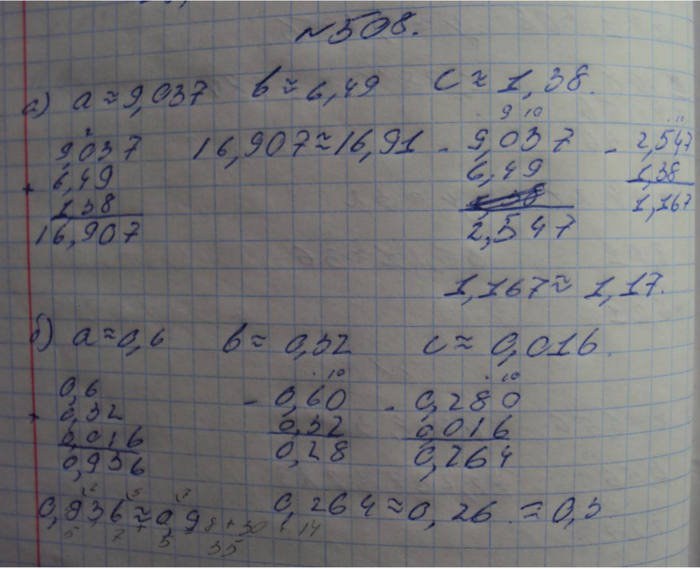 №508.
а) a≈9,037 b≈6,49 c≈1,38.
9,037
+ 6,49
1,38
16,907
16,907≈16,91
9 10
- 9,037
6,49
2,547
10
- 2,547
1,38
1,167
1,167≈1,17.
б) a≈0,6 b≈0,32 c≈0,016.
0,6
+ 0,32
0,016
0,936
10
- 0,60
0,32
0,28
10
- 0,280
0,016
0,264
0,936≈0,9 0,264≈0,26 ≈0,3